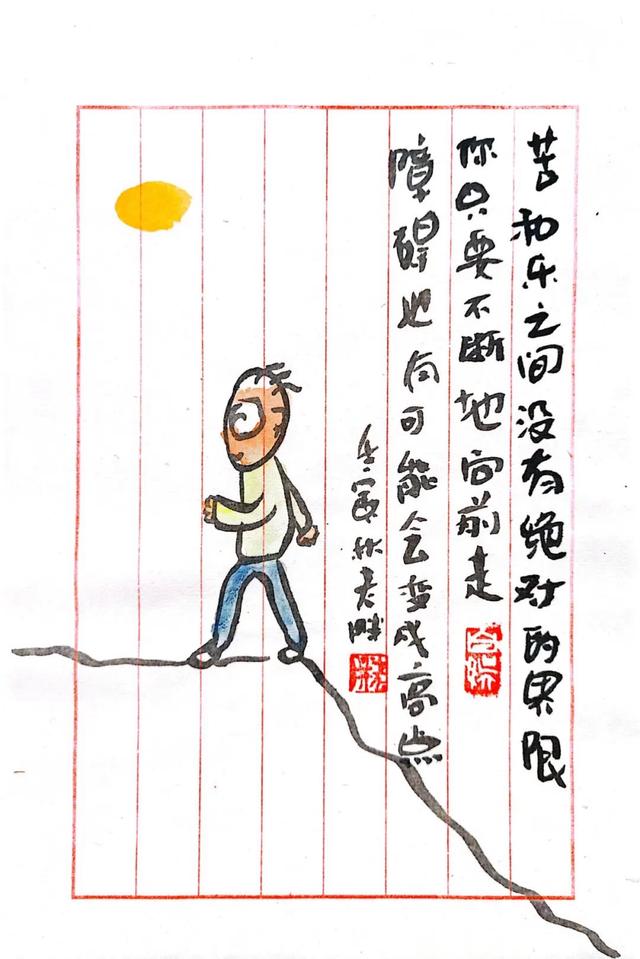 苦和乐之间没有绝对的界限
你只要不断地向前走
障碍也有可能会变成高点
壬寅林老